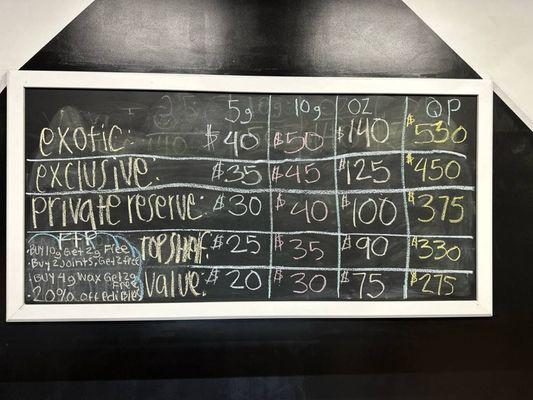 5g 10g OZ QP
exotic: $40 $50 $140 $530
exclusive: $35 $45 $125 $450
private reserve: $30 $40 $100 $375
top shelf: $25 $35 $90 $330
value: $20 $30 $75 $275
FTP
• Buy 10g Get 2g Free
• Buy 2 Joints, Get 2 free
• Buy 4g Wax Get 2g
Free
20% off Edibles